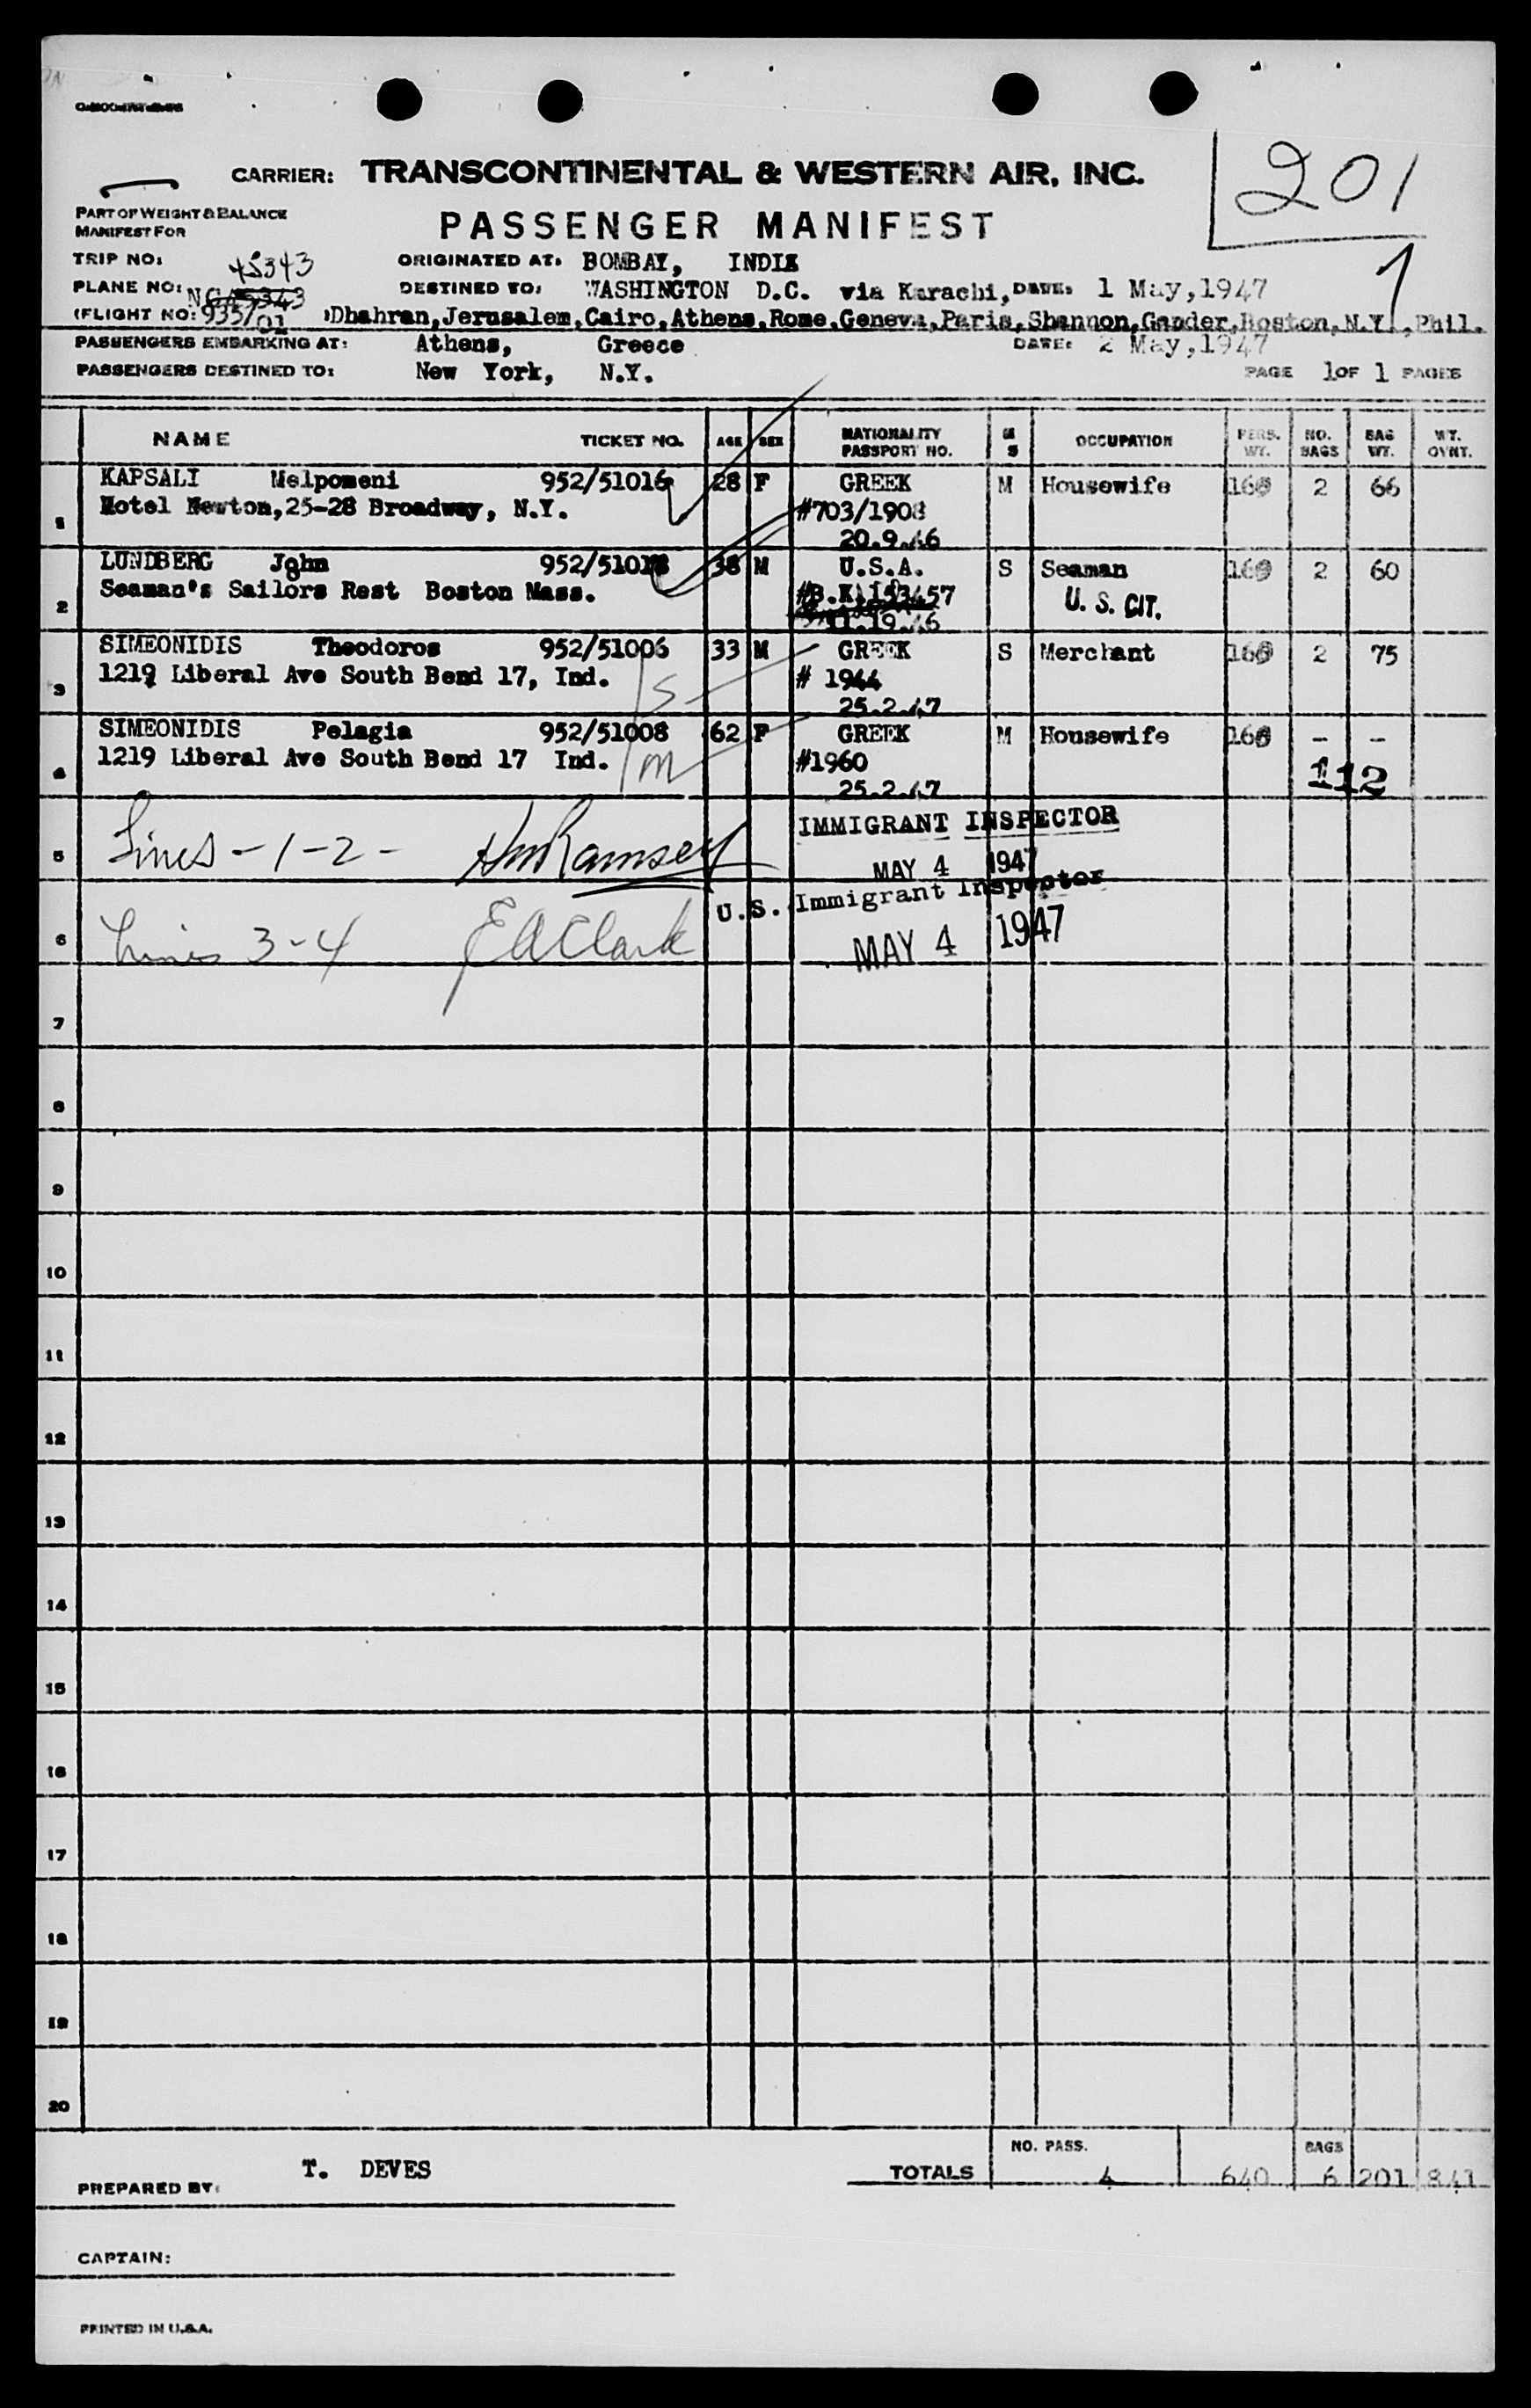 201
CARRIER: TRANSCONTINENTAL & WESTERN AIR, INC.
PART OF WEIGHT & BALANCE
MANIFEST FOR
PASSENGER MANIFEST
1
TRIP NO: 45343 ORIGINATED AT: BOMBAY, INDIA
PLANE NO: DESTINED TO: WASHINGTON D.C. via Karachi, DATE: 1 May, 1947
(FLIGHT NO: 935/01 )Dhahran,Jerusalem,Cairo,Athens,Rome,Geneva,Paris,Shannon,Gander,Boston,N.Y.,Phil.
PASSENGERS EMBARKING AT: Athens, Greece DATE: 2 May,1947
PASSENGERS DESTINED TO: New York, N.Y. PAGE 1 OF 1 PAGES
NAME TICKET NO. AGE SEX NATIONALITY PASSPORT NO. M S OCCUPATION PERS. WT. NO. BAGS BAG WT. WT. OVNT.
KAPSALI Melpomeni 952/51016 28 F GREEK M Housewife 160 2 66
1 Hotel Newton,25-28 Broadway, N.Y. #703/1908
20.9.46
LUNDBERG John 38 M U.S.A. S Seaman 160 2 60
2 Seaman's Sailors Rest Boston Mass. #B.K. 153457 U. S. CIT.
11.19.46
SIMEONIDIS Theodoros 952/51006 33 M GREEK S Merchant 160 2 75
3 1219 Liberal Ave South Bend 17, Ind. S # 1944
25.2.47
SIMEONIDIS Pelagia 952/51008 62 F GREEK M Housewife 160 - -
4 1219 Liberal Ave South Bend 17 Ind. m #1960 112
25.2.47
5 Lines - 1 - 2 - HmRamsey IMMIGRANT INSPECTOR
MAY 4 1947
U.S. Immigrant Inspector
6 Lines 3-4 EAClark MAY 4 1947
7
8
9
10
11
12
13
14
15
16
17
18
19
20
NO. PASS. BAGS
TOTALS 4 640 6 201 841
PREPARED BY: T. DEVES
CAPTAIN:
PRINTED IN U.S.A.